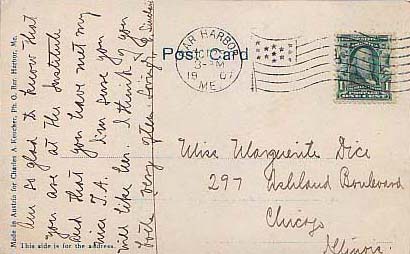 Made in Austria for Charles A. Kencher, Ph. G. Bar Harbor, Me.
Am so glad to know that
you are at the Institute
and that you have met my
I'm sure you
will like her. I think of you
both very often.
Post Card
BAR HARBOR
OCT
9-AM
1907
ME.
Miss Marguerite Dice
297 Ashland Boulevard
Chicago
Illinois.
This side is for the address.